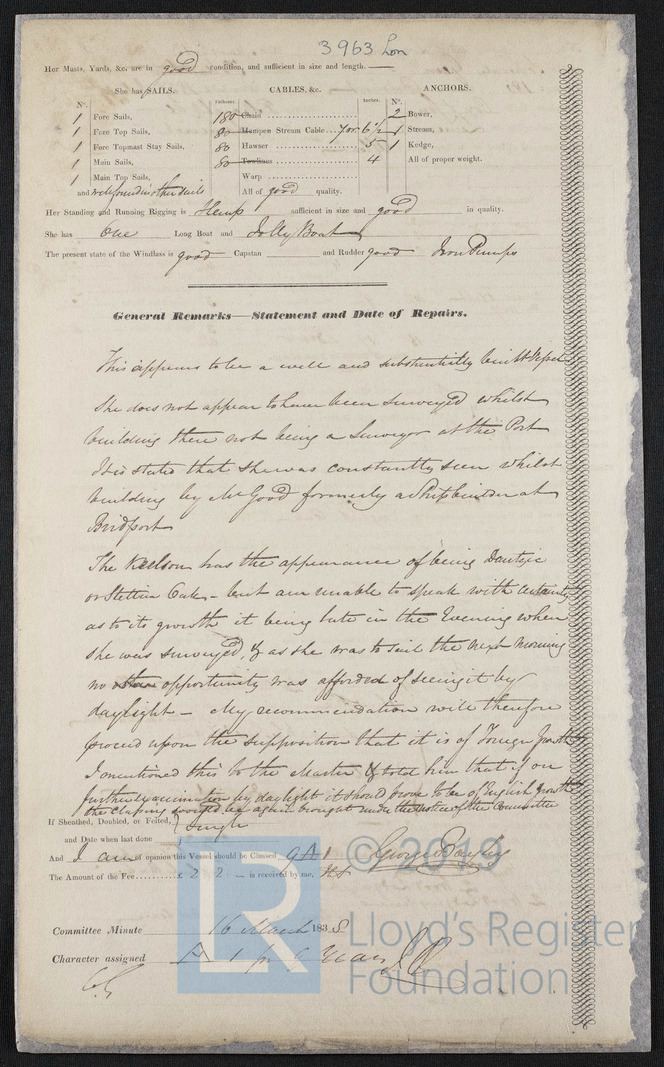 3963 Lon
Her Masts, Yards, &c. are in good condition, and sufficient in size and length.
She has SAILS. CABLES, &c. ANCHORS.
N°. Fathoms. Inches. N°.
1 Fore Sails, 180 Chain 2 Bower,
1 Fore Top Sails, 80 Hempen Stream Cable 6½ 1 Stream,
1 Fore Topmast Stay Sails, 80 Hawser 5 1 Kedge,
1 Main Sails, 80 Towlines 4 All of proper weight.
1 Main Top Sails, Warp
and well found in other sails All of good quality.
Her Standing and Running Rigging is Hemp sufficient in size and good in quality.
She has One Long Boat and Jolly Boat
The present state of the Windlass is good Capstan and Rudder good Iron Pumps
General Remarks—Statement and Date of Repairs.
This appears to be a well and substantially built Vessel
She does not appear to have been surveyed whilst
building there not being a Surveyor at the Port
It is stated that she was constantly seen whilst
building by Mr Good formerly a Shipbuilder at
Bridport
The Keelson has the appearance of being Dantzic
or Stettin Oak - but am unable to speak with certainty
as to its growth it being late in the Evening when
she was surveyed, & as she was to sail the next morning
no other opportunity was afforded of seeing it by
daylight - My recommendation will therefore
proceed upon the supposition that it is of Foreign Growth
I mentioned this to the Master & told him that if on
further examination by daylight it should prove to be of English growth
the Class would be again brought under the notice of the Committee
If Sheathed, Doubled, or Felted, and Date when last done } Single
And I am of opinion this Vessel should be Classed 9 A 1
The Amount of the Fee £ 2 2 - is received by me,
Committee Minute 16 March 1838
Character assigned A 1 for 9 Years
© 2019
LR
Lloyd's Register
Foundation